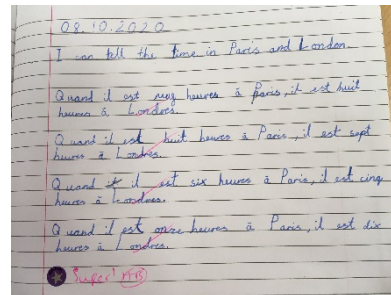 08.10.2020
I can tell the time in Paris and London.
Quand il est neuf heures à Paris, it est huit
heures à Londres.
Quand it est huit heures à Paris, il est sept
heures à Londres.
Quand il est six heures à Paris, il est cinq
heures à Londres.
Quand il est onze heures à Paris, il est dix
heures à Londres.
Super!